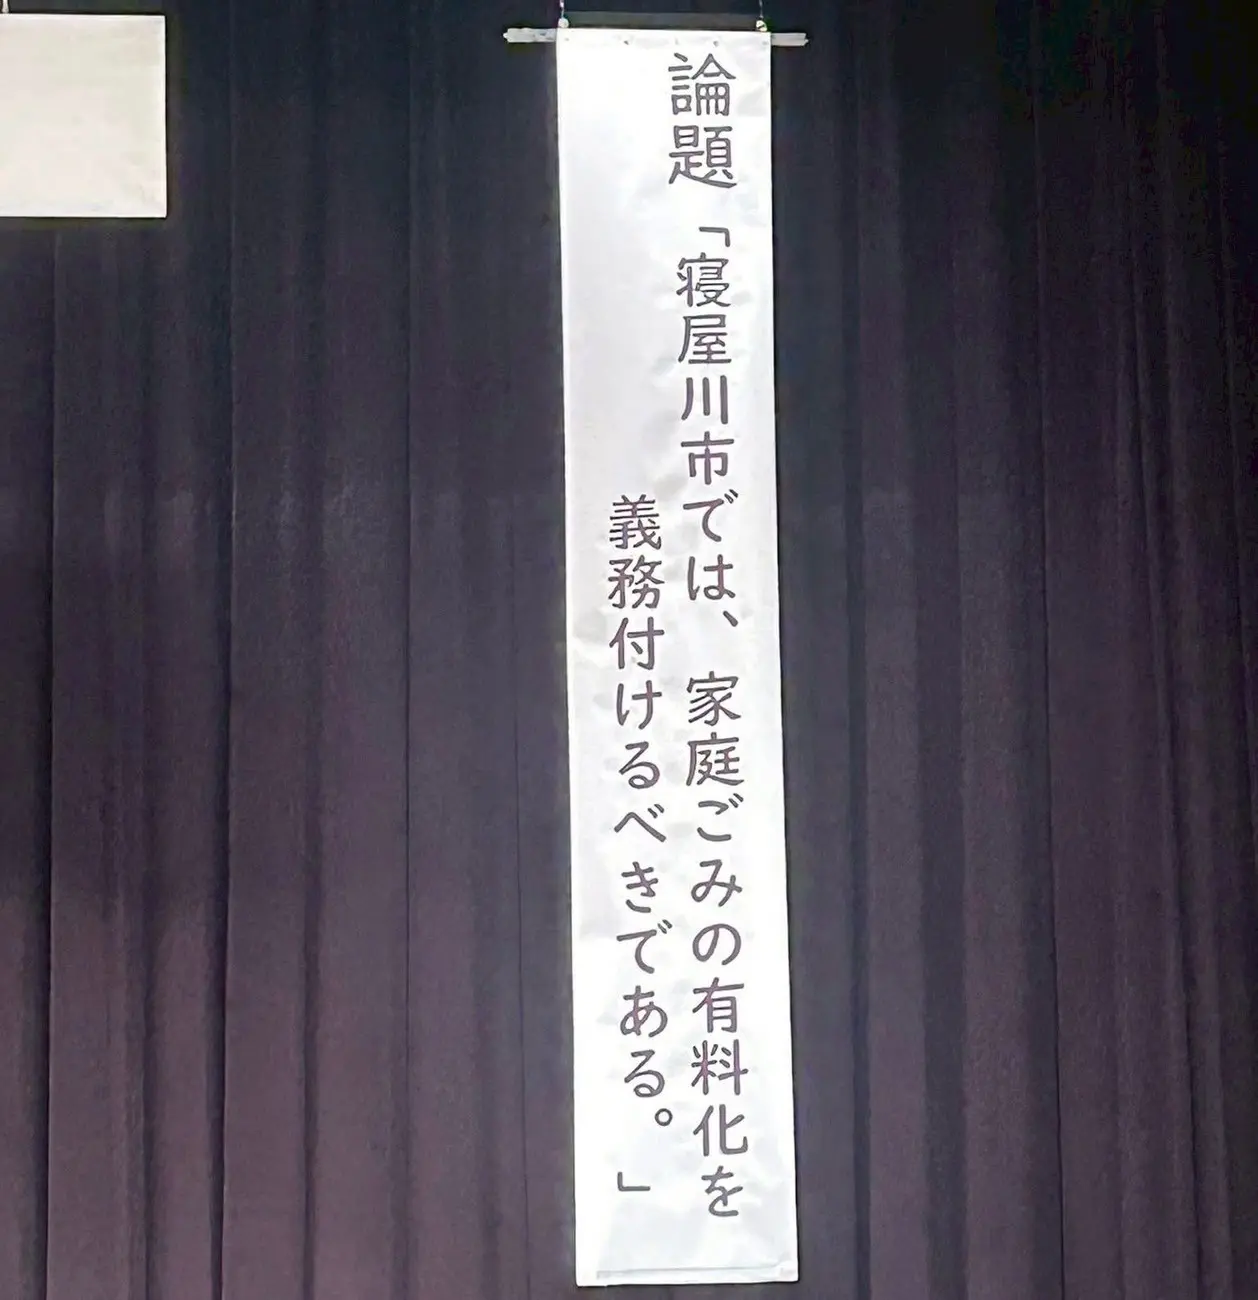 論題「寝屋川市では、家庭ごみの有料化を
義務付けるべきである。」